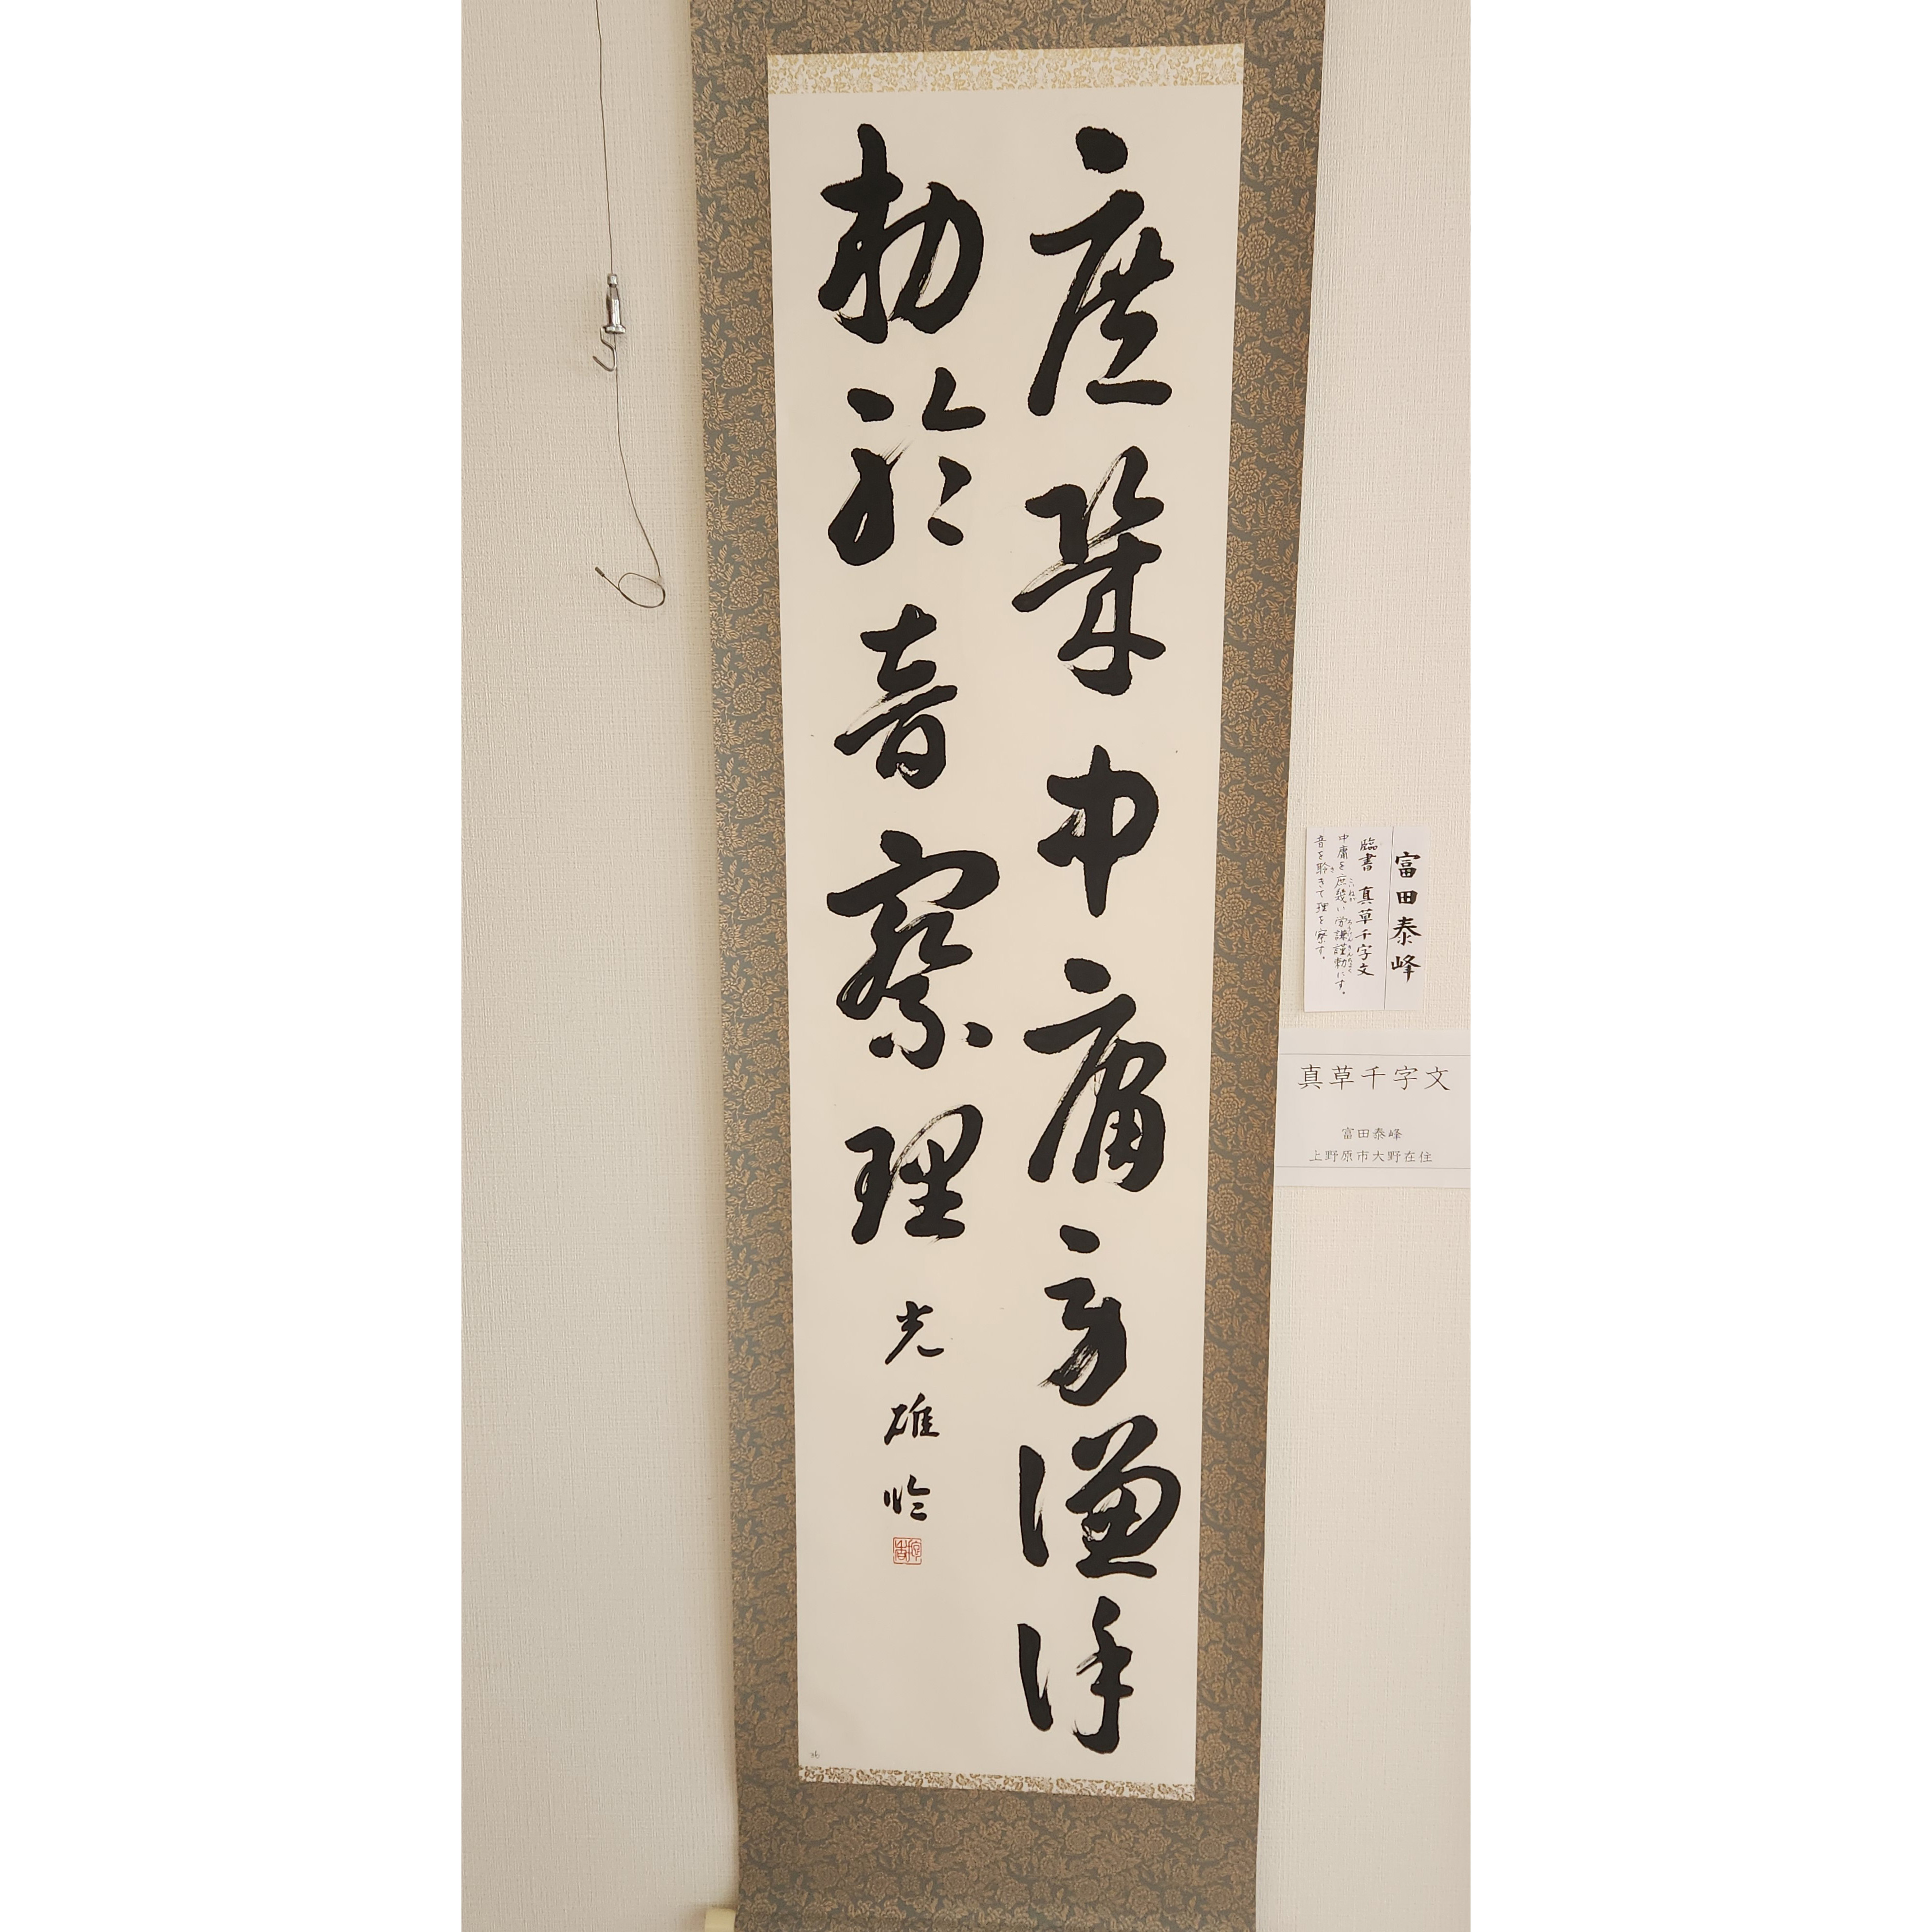 庶幾中庸労謙謹
勅聆音察理
光雄臨
富田泰峰
臨書 真草千字文
中庸を庶幾い労謙謹勅にす。
音を聆きて理を察す。
真草千字文
富田泰峰
上野原市大野在住